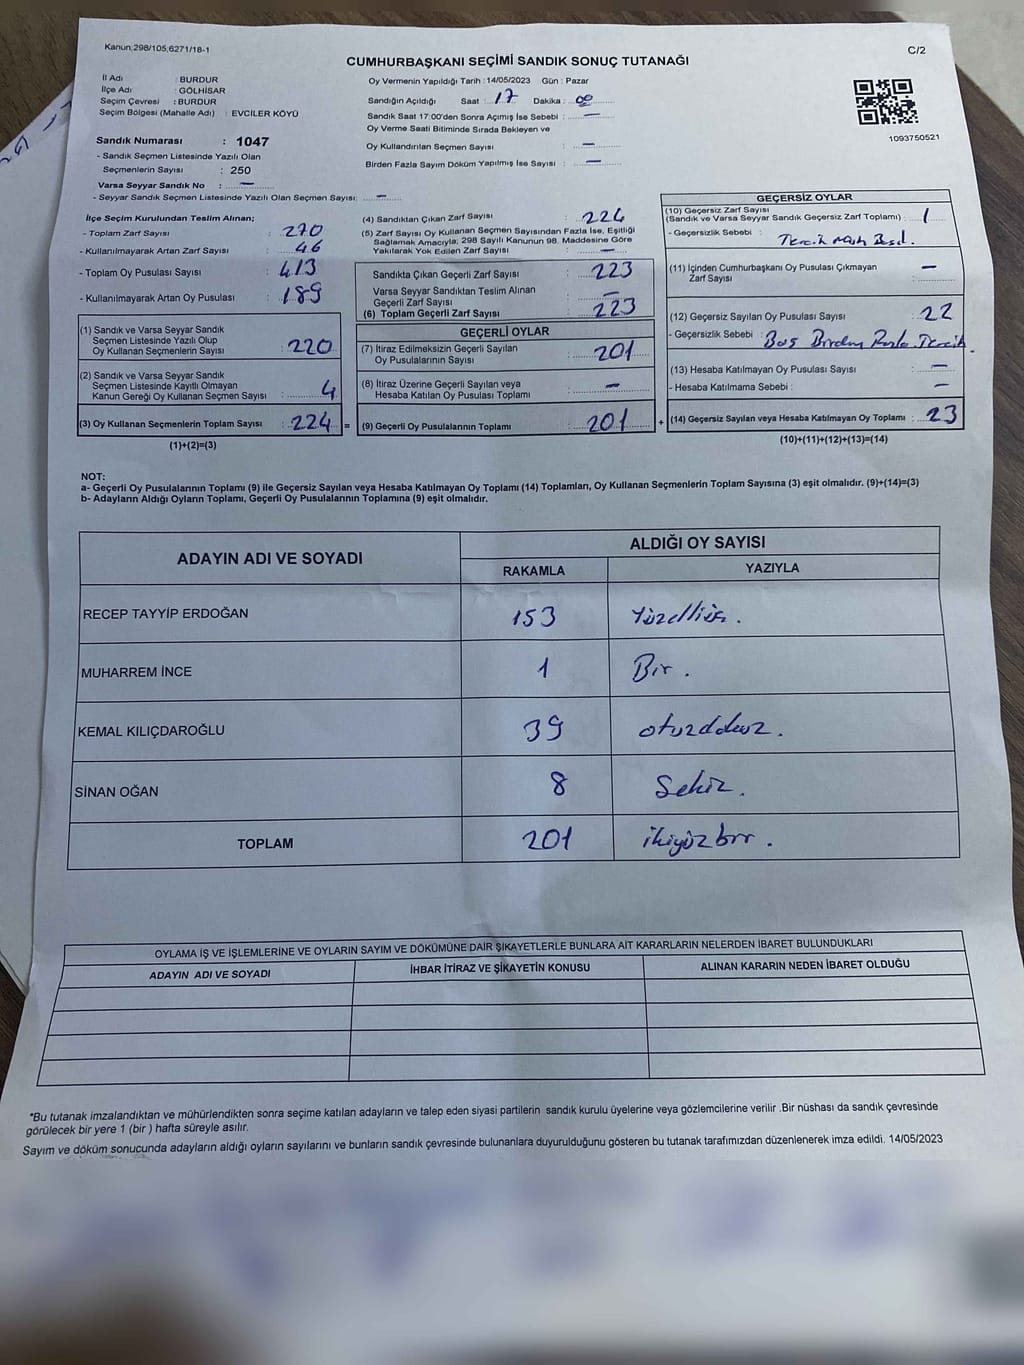 Kanun;298/105;6271/18-1
C/2
CUMHURBAŞKANI SEÇİMİ SANDIK SONUÇ TUTANAĞI
İl Adı : BURDUR
İlçe Adı : GÖLHİSAR
Seçim Çevresi : BURDUR
Seçim Bölgesi (Mahalle Adı) : EVCİLER KÖYÜ
Sandık Numarası : 1047
- Sandık Seçmen Listesinde Yazılı Olan
Seçmenlerin Sayısı : 250
Varsa Seyyar Sandık No : —
- Seyyar Sandık Seçmen Listesinde Yazılı Olan Seçmen Sayısı: —
Oy Vermenin Yapıldığı Tarih : 14/05/2023 Gün : Pazar
Sandığın Açıldığı Saat : 17 Dakika : 00
Sandık Saat 17:00'den Sonra Açımış İse Sebebi : —
Oy Verme Saati Bitiminde Sırada Bekleyen ve
Oy Kullandırılan Seçmen Sayısı : —
Birden Fazla Sayım Döküm Yapılmış İse Sayısı : —
1093750521
İlçe Seçim Kurulundan Teslim Alınan;
- Toplam Zarf Sayısı : 270
- Kullanılmayarak Artan Zarf Sayısı : 46
- Toplam Oy Pusulası Sayısı : 413
- Kullanılmayarak Artan Oy Pusulası : 189
(1) Sandık ve Varsa Seyyar Sandık
Seçmen Listesinde Yazılı Olup
Oy Kullanan Seçmenlerin Sayısı : 220
(2) Sandık ve Varsa Seyyar Sandık
Seçmen Listesinde Kayıtlı Olmayan
Kanun Gereği Oy Kullanan Seçmen Sayısı : 4
(3) Oy Kullanan Seçmenlerin Toplam Sayısı : 224 =
(1)+(2)=(3)
(4) Sandıktan Çıkan Zarf Sayısı : 224
(5) Zarf Sayısı Oy Kullanan Seçmen Sayısından Fazla İse, Eşitliği
Sağlamak Amacıyla; 298 Sayılı Kanunun 98. Maddesine Göre
Yakılarak Yok Edilen Zarf Sayısı : —
Sandıkta Çıkan Geçerli Zarf Sayısı : 223
Varsa Seyyar Sandıktan Teslim Alınan
Geçerli Zarf Sayısı : —
(6) Toplam Geçerli Zarf Sayısı : 223
GEÇERLİ OYLAR
(7) İtiraz Edilmeksizin Geçerli Sayılan
Oy Pusulalarının Sayısı : 201
(8) İtiraz Üzerine Geçerli Sayılan veya
Hesaba Katılan Oy Pusulası Toplamı : —
(9) Geçerli Oy Pusulalarının Toplamı : 201 +
GEÇERSİZ OYLAR
(10) Geçersiz Zarf Sayısı
(Sandık ve Varsa Seyyar Sandık Geçersiz Zarf Toplamı) : 1
- Geçersizlik Sebebi : Tercih
(11) İçinden Cumhurbaşkanı Oy Pusulası Çıkmayan
Zarf Sayısı : —
(12) Geçersiz Sayılan Oy Pusulası Sayısı : 22
- Geçersizlik Sebebi : Boş Birden Fazla Tercih.
(13) Hesaba Katılmayan Oy Pusulası Sayısı : —
- Hesaba Katılmama Sebebi : —
(14) Geçersiz Sayılan veya Hesaba Katılmayan Oy Toplamı : 23
(10)+(11)+(12)+(13)=(14)
NOT:
a- Geçerli Oy Pusulalarının Toplamı (9) ile Geçersiz Sayılan veya Hesaba Katılmayan Oy Toplamı (14) Toplamları, Oy Kullanan Seçmenlerin Toplam Sayısına (3) eşit olmalıdır. (9)+(14)=(3)
b- Adayların Aldığı Oyların Toplamı, Geçerli Oy Pusulalarının Toplamına (9) eşit olmalıdır.
ADAYIN ADI VE SOYADI
ALDIĞI OY SAYISI
RAKAMLA YAZIYLA
RECEP TAYYİP ERDOĞAN 153 Yüzelliüç.
MUHARREM İNCE 1 Bir.
KEMAL KILIÇDAROĞLU 39 otuzdokuz.
SİNAN OĞAN 8 Sekiz.
TOPLAM 201 ikiyüzbir.
OYLAMA İŞ VE İŞLEMLERİNE VE OYLARIN SAYIM VE DÖKÜMÜNE DAİR ŞİKAYETLERLE BUNLARA AİT KARARLARIN NELERDEN İBARET BULUNDUKLARI
ADAYIN ADI VE SOYADI İHBAR İTİRAZ VE ŞİKAYETİN KONUSU ALINAN KARARIN NEDEN İBARET OLDUĞU
*Bu tutanak imzalandıktan ve mühürlendikten sonra seçime katılan adayların ve talep eden siyasi partilerin sandık kurulu üyelerine veya gözlemcilerine verilir .Bir nüshası da sandık çevresinde
görülecek bir yere 1 (bir ) hafta süreyle asılır.
Sayım ve döküm sonucunda adayların aldığı oyların sayılarını ve bunların sandık çevresinde bulunanlara duyurulduğunu gösteren bu tutanak tarafımızdan düzenlenerek imza edildi. 14/05/2023